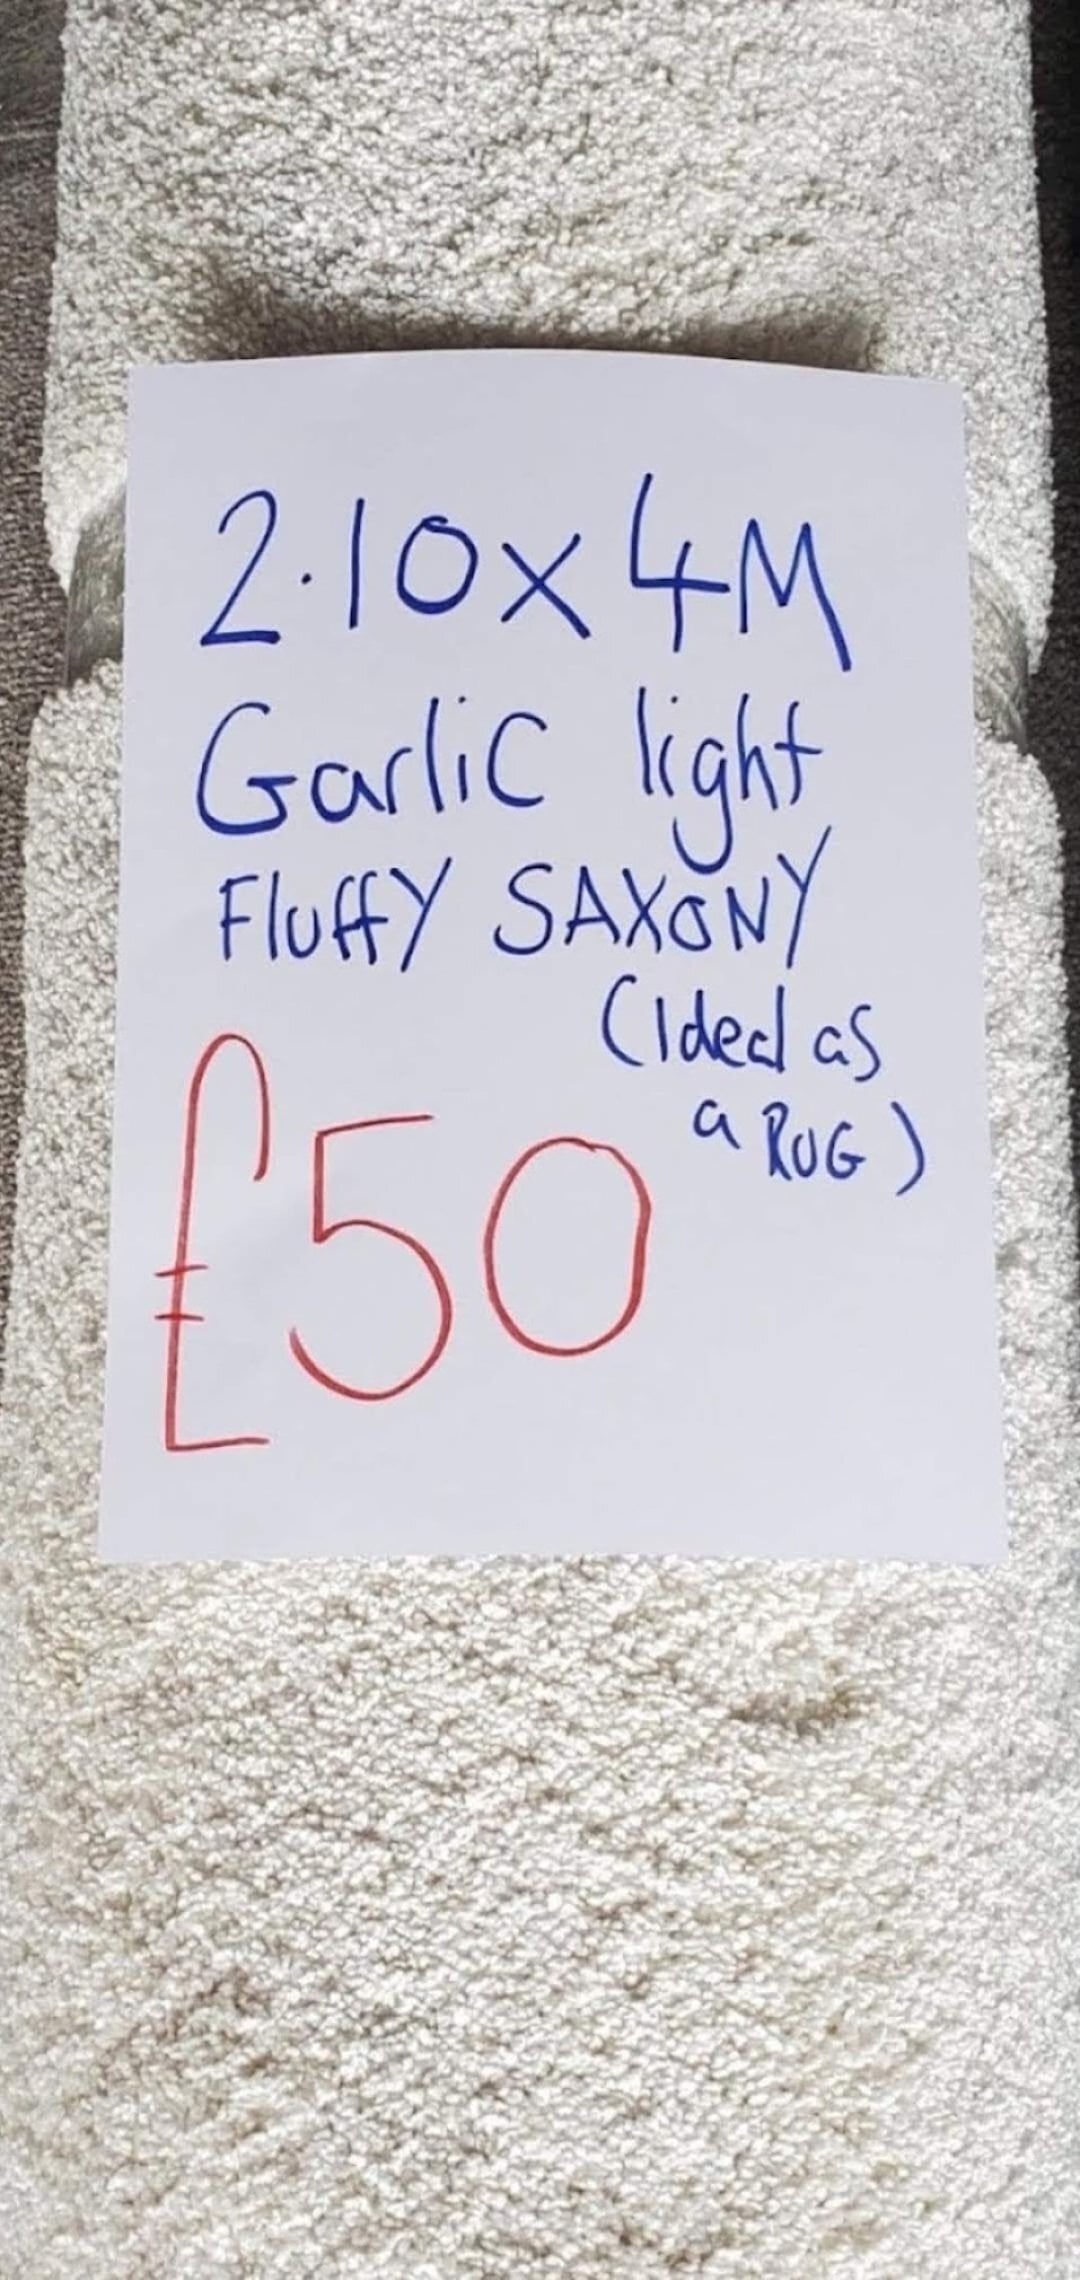 2.10 x 4M
Garlic light
Fluffy SAXONY
(Ideal as
a RUG)
£50